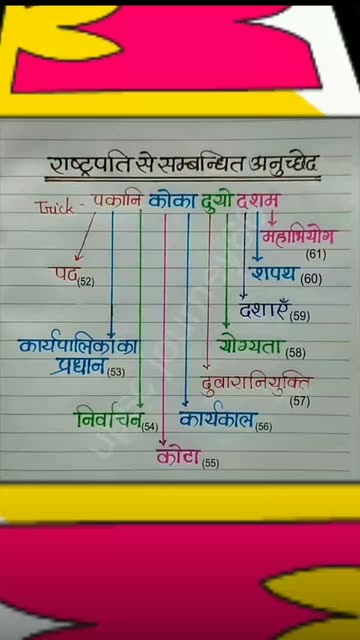 राष्ट्रपति से सम्बन्धित अनुच्छेद
Trick - पकानि कोका दुयो दशम
महाभियोग
(61)
पद (52)
शपथ (60)
दशाएँ (59)
कार्यपालिका का
प्रधान (53)
योग्यता (58)
दुबारा नियुक्ति
(57)
निर्वाचन (54)
कार्यकाल (56)
कोटा (55)